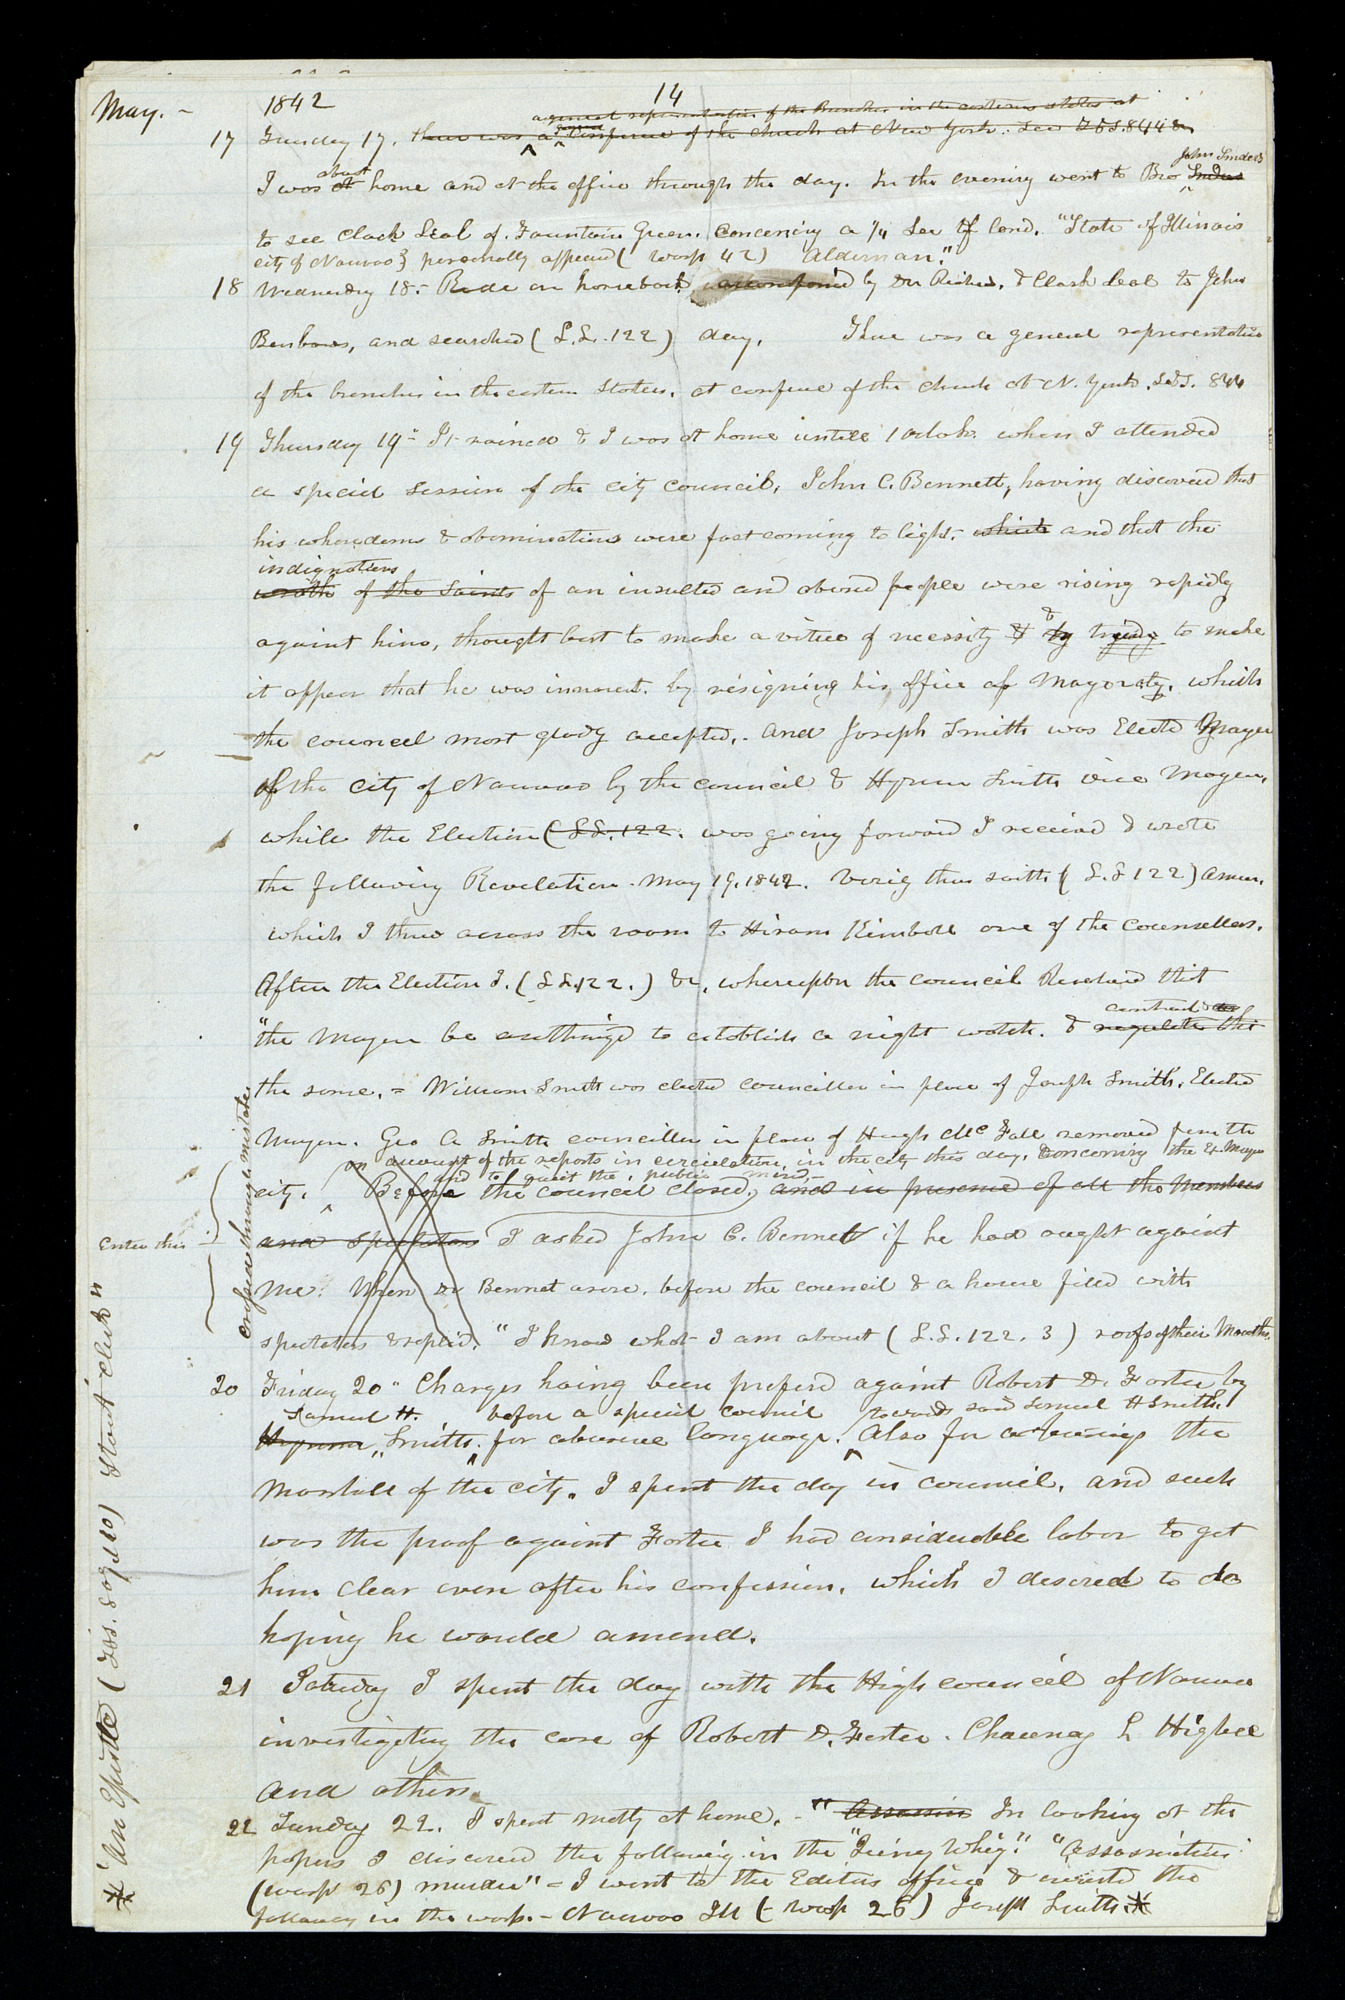 May. - 1842 14
a general representation of the Branches in the eastern states at
17 Tuesday 17. there was a Conference of the church at New York. see T&S. 844
about John Snider's
I was at home and at the office through the day. In the evening went to Bro Sniders
to see Clark Leal of Fountain Green. Concerning a 1/4 Sec of land. "State of Illinois
city of Nauvoo} personally appeared ( wasp 42) Alderman."
18 Wednesday 18. Rode on horseback accompanied by Dr Richards, & Clark Leal to John
Benbows, and searched ( L.L. 122) day. There was a general representation
of the branches in the eastern States, at confrence of the church at N. York, see T&S. 844
19 Thursday 19- It rained & I was at home untill 1 oclok when I attended
a special session of the city council, John C. Bennett, having discovered that
his whoredoms & abominations were fast coming to light, which and that the
indignations
wrath of the Saints of an insulted and abused people were rising rapidly
against him, thought best to make a virtue of necessity & by trying to make
it appear that he was innocent. by resigning his office of Mayoralty, which
the council most gladly accepted,. and Joseph Smith was Elected Mayor
of the city of Nauvoo by the council & Hyrum Smith vice Mayor,
while the Election ( L.L. 122. was going forward I received & wrote
the following Revelation. May 19. 1842. Verily thus saith ( L.L 122) Amen.
which I threw across the room to Hiram Kimball one of the Counsellors.
After the Election I. ( L.L. 122.) &c, whereupon the council Resolved that
controul &
"the Mayor be authorized to establish a night watch. & regulate the
the same. = William Smith was elected councillor in place of Joseph Smith, Elected
Mayor. Geo A Smith councillor in place of Hugh Mc Fall removed from the
on account of the reports in circulation, in the city this day, Concerning the Ex Mayor
and to quiet the public mind,-
city. Before the council closed, and in presence of all the Members
Enter this - and spectators I asked John C. Bennett if he had aught against
me? When Dr Bennet arose, before the council & a house filled with
spectators & replied. "I know what I am about ( L.L. 122. 3 ) roofs of their Mouths.
crossed through a mistake
20 Friday 20" Charges having been preferd against Robert D. Foster by
Samuel H. before a special council towards said Samuel H Smith.
Hyrum Smith, for abusive language. Also for abusing the
Marshall of the city. I spent the day in council, and such
was the proof against Foster I had considerable labor to get
him clear even after his confession, which I desired to do
hoping he would amend.
21 Saturday I spent the day with the High council of Nauvoo
investigating the case of Robert D. Foster. Chauncy L Higbee
and others.
22 Sunday 22. I spent mostly at home. - " Assassin In looking at the
papers I discoverd the following in the "Quincy Whig." "Assassination
(wasp 26) murder" - I went to the Editors office & inserted the
following in the wasp. - Nauvoo Ill ( wasp 26) Joseph Smith. *
* "An Epistle ( T&S. 809 to 10) Stout clerk"